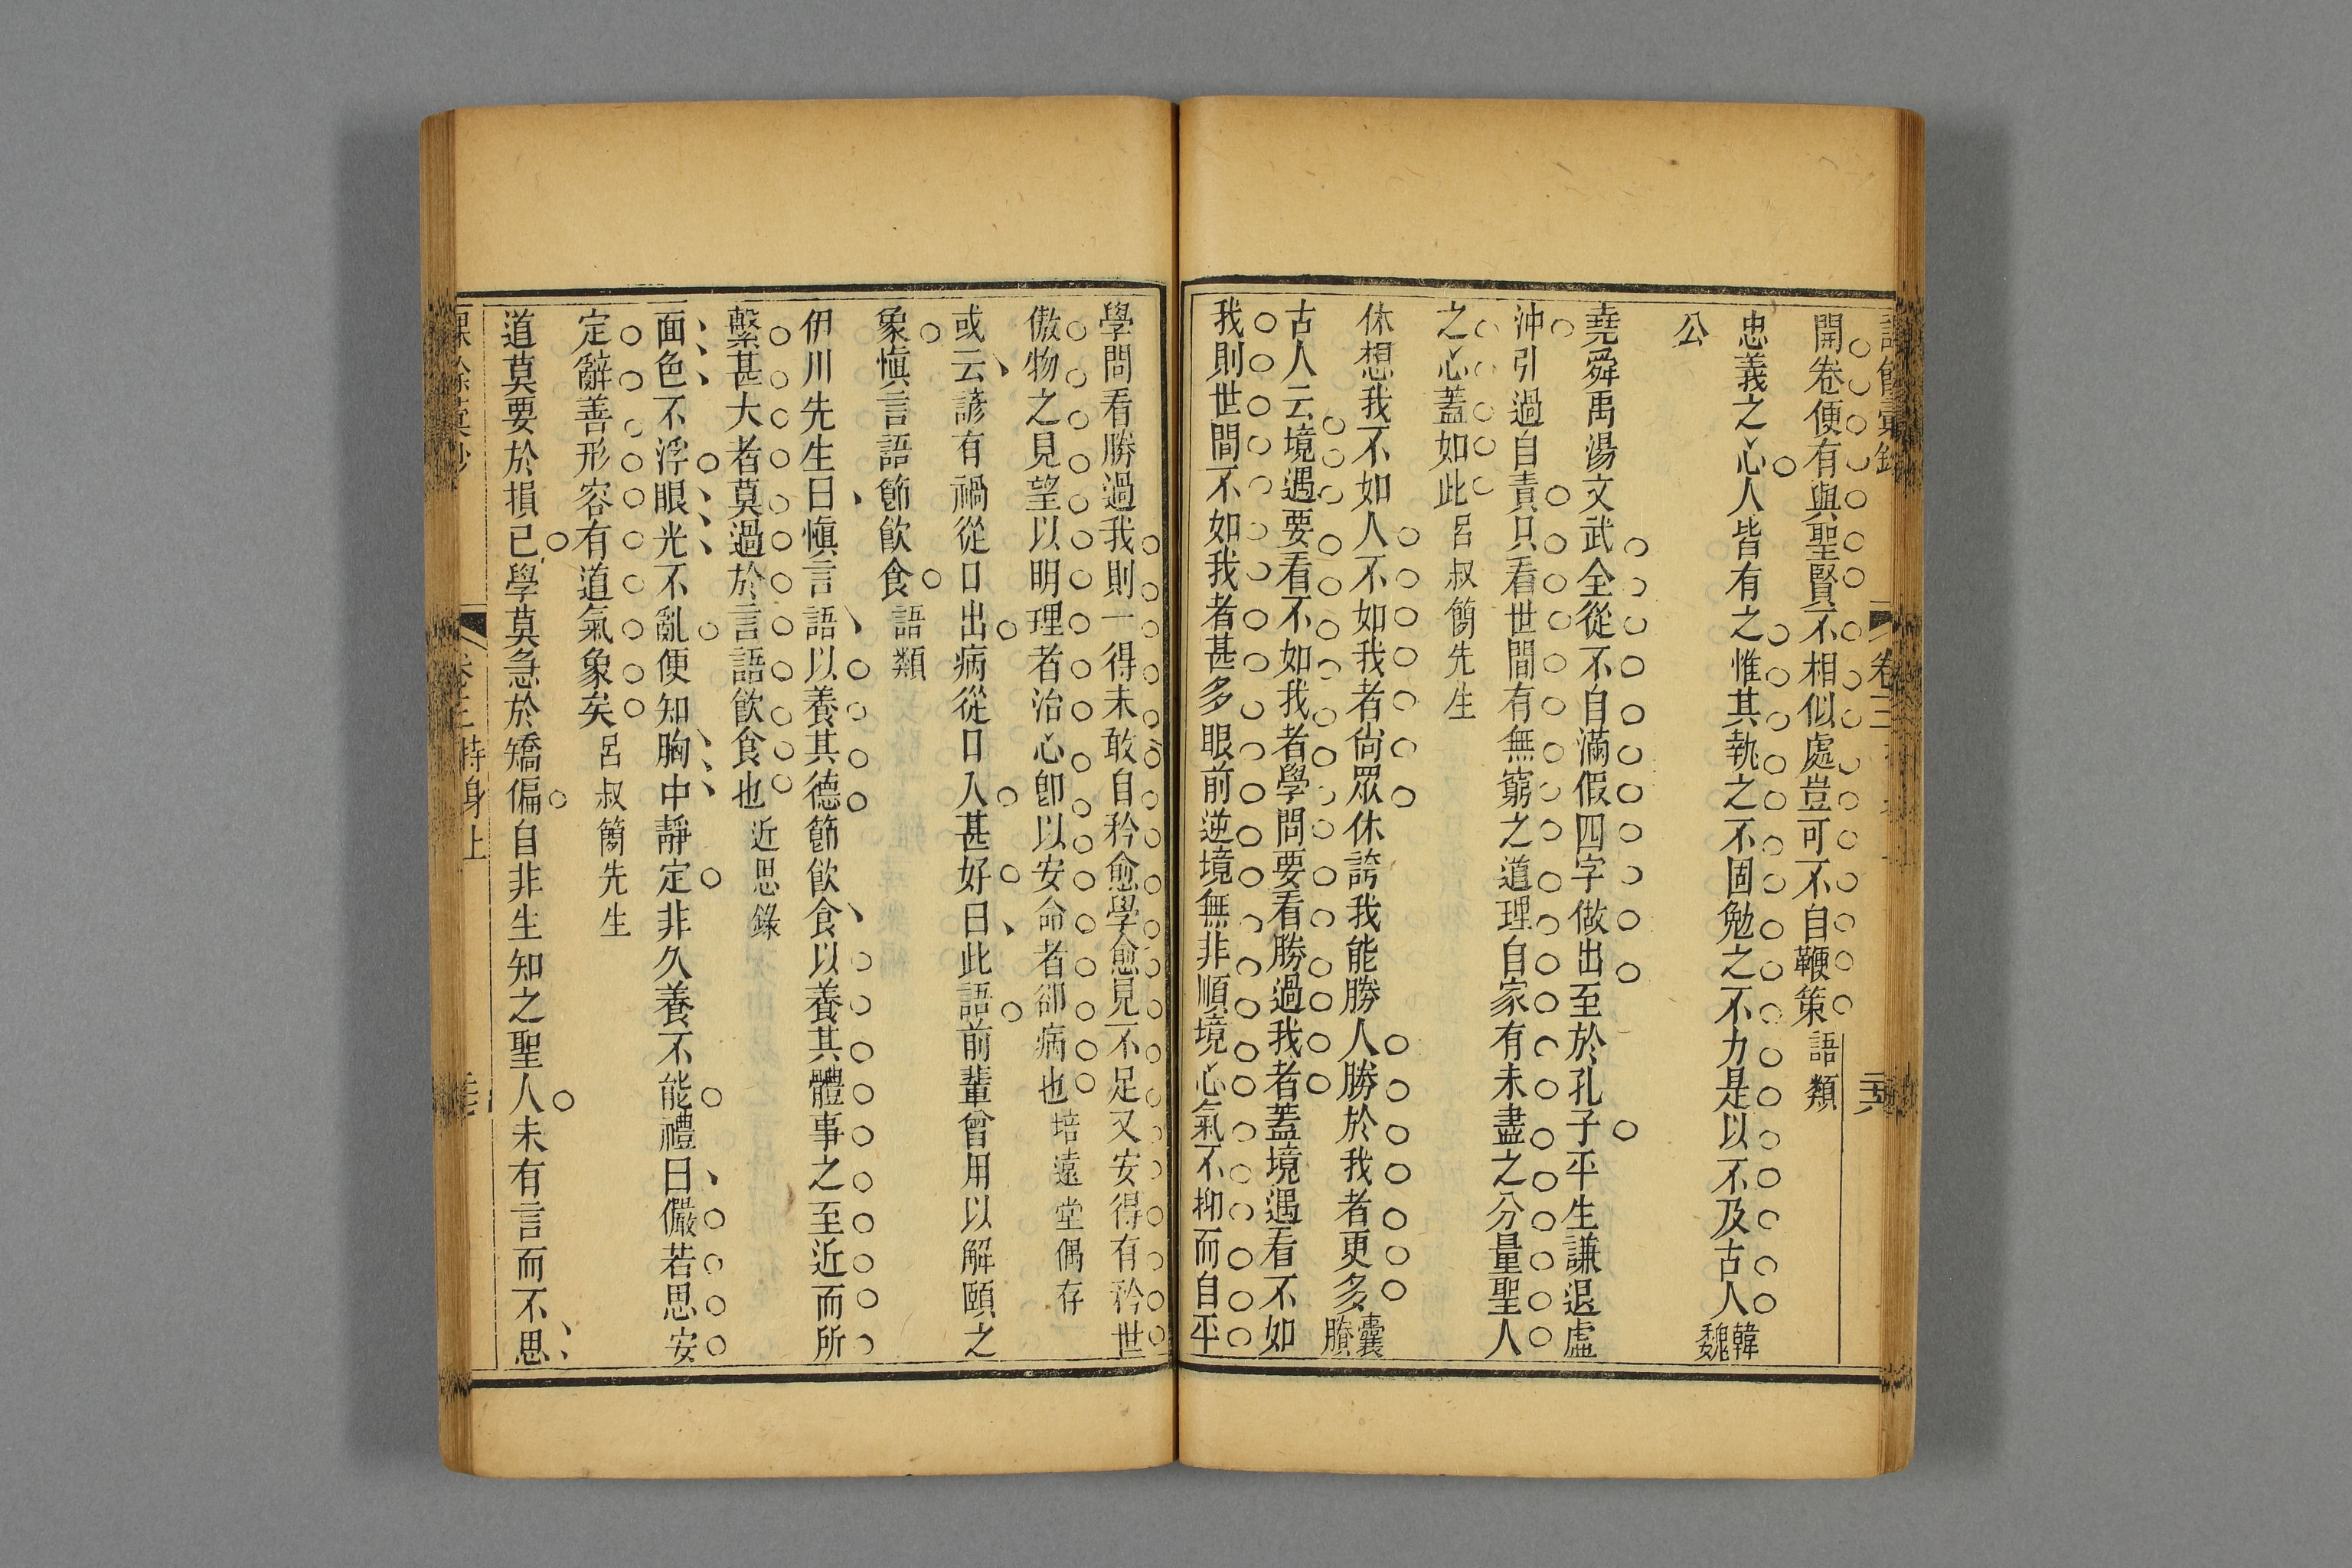 開卷便有與聖賢不相似處豈可不自鞭策語類
忠義之心人皆有之惟其執之不固勉之不力是以不及古人韓魏
公
堯舜禹湯文武全從不自滿假四字做出至於孔子平生謙退虛
沖引過自責只看世間有無窮之道理自家有未盡之分量聖人
之心蓋如此呂叔簡先生
休想我不如人不如我者尙眾休誇我能勝人勝於我者更多囊賸
古人云境遇要看不如我者學問要看勝過我者蓋境遇看不如
我則世間不如我者甚多眼前逆境無非順境心氣不抑而自平
學問看勝過我則一得未敢自矜愈學愈見不足又安得有矜世
傲物之見望以明理者治心卽以安命者卻病也培遠堂偶存
或云諺有禍從口出病從口入甚好曰此語前輩曾用以解頤之
象愼言語節飲食語類
伊川先生曰愼言語以養其德節飲食以養其體事之至近而所
繫甚大者莫過於言語飲食也近思錄
面色不浮眼光不亂便知胸中靜定非久養不能禮曰儼若思安
定辭善形容有道氣象矣呂叔簡先生
道莫要於損己學莫急於矯偏自非生知之聖人未有言而不思
卷三持身上